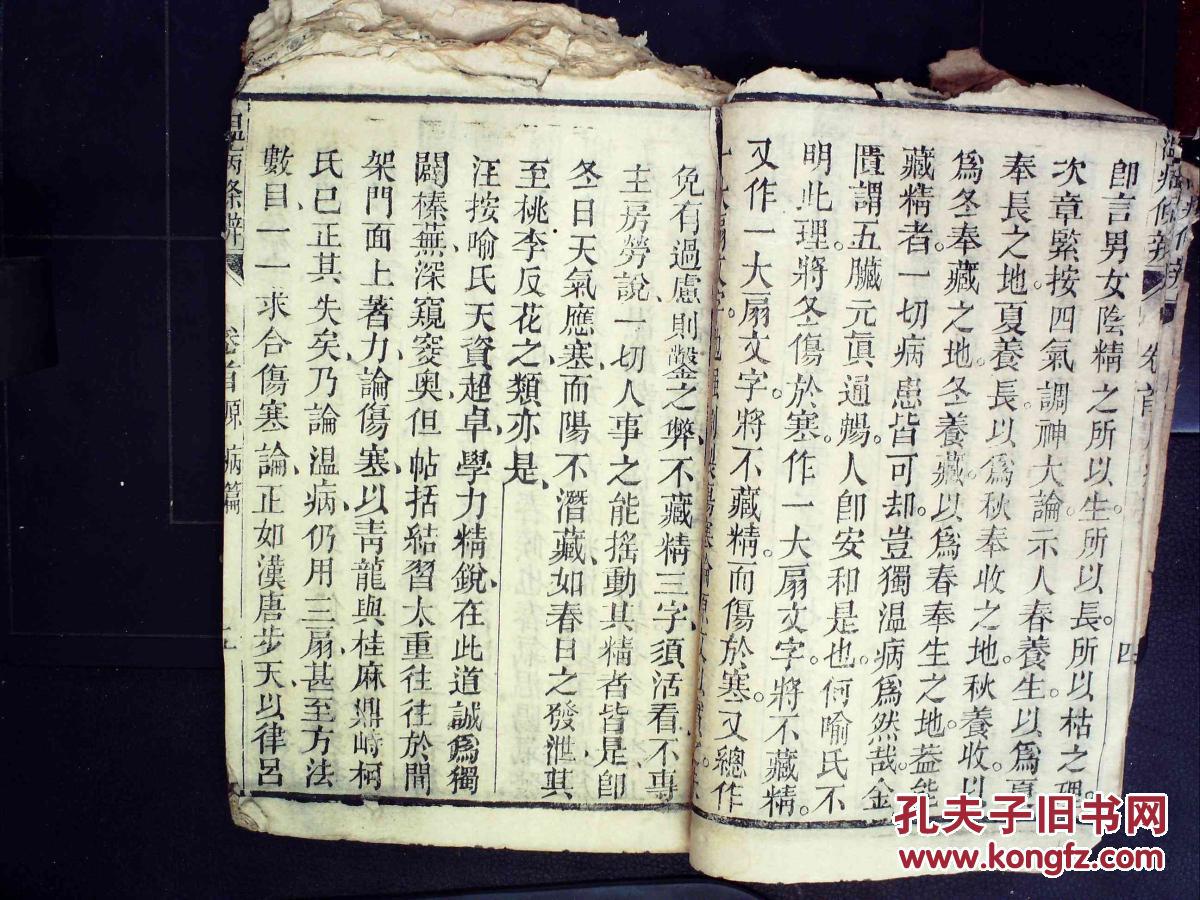 卽言男女陰精之所以生。所以長。所以枯之理。
次章緊按四氣調神大論。示人春養生以爲夏
奉長之地。夏養長。以爲秋奉收之地。秋養收。以
爲冬奉藏之地。冬養藏。以爲春奉生之地。葢能
藏精者一切病患皆可却。豈獨溫病爲然哉。金
匱謂五臟元眞通暢。人卽安和是也。何喻氏不
明此理。將冬傷於寒。作一大扇文字。將不藏精。
又作一大扇文字。將不藏精而傷於寒。又總作
四
免有過慮則鑿之弊、不藏精三字、須活看、不專
主房勞說、一切人事之能搖動其精者皆是、卽
冬日天氣應寒而陽不潛藏、如春日之發泄、甚
至桃李反花之類亦是、
汪按喻氏天資超卓、學力精銳、在此道誠爲獨
闢榛蕪、深窺窔奧、但帖括結習太重、往往於間
架門面上著力、論傷寒、以靑龍與桂麻鼎峙、柯
氏已正其失矣、乃論溫病、仍用三扇、甚至方法
數目、一一求合傷寒論、正如漢唐步天、以律呂
溫病條辨
卷首 原病篇
孔夫子旧书网
www.kongfz.com